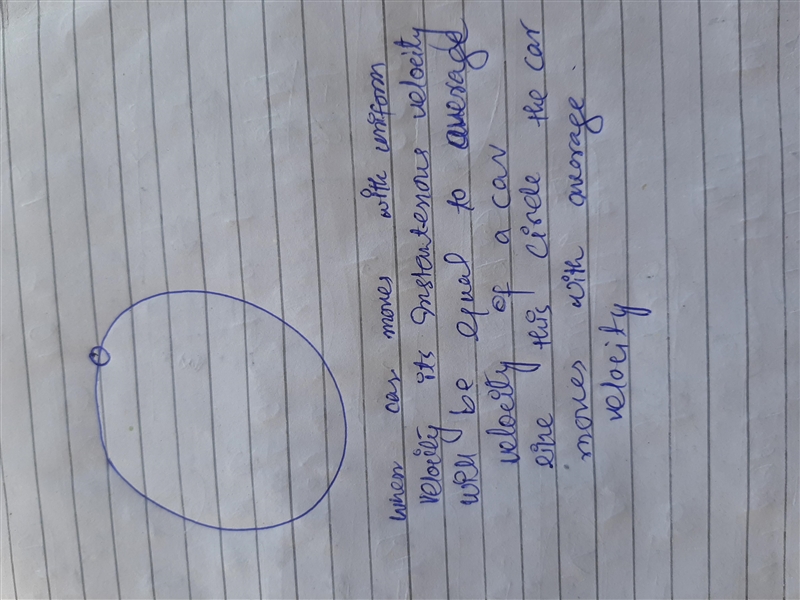 when car moves with uniform
velocity its instantenous velocity
will be equal to average
velocity of a car
like this circle the car
moves with average
velocity